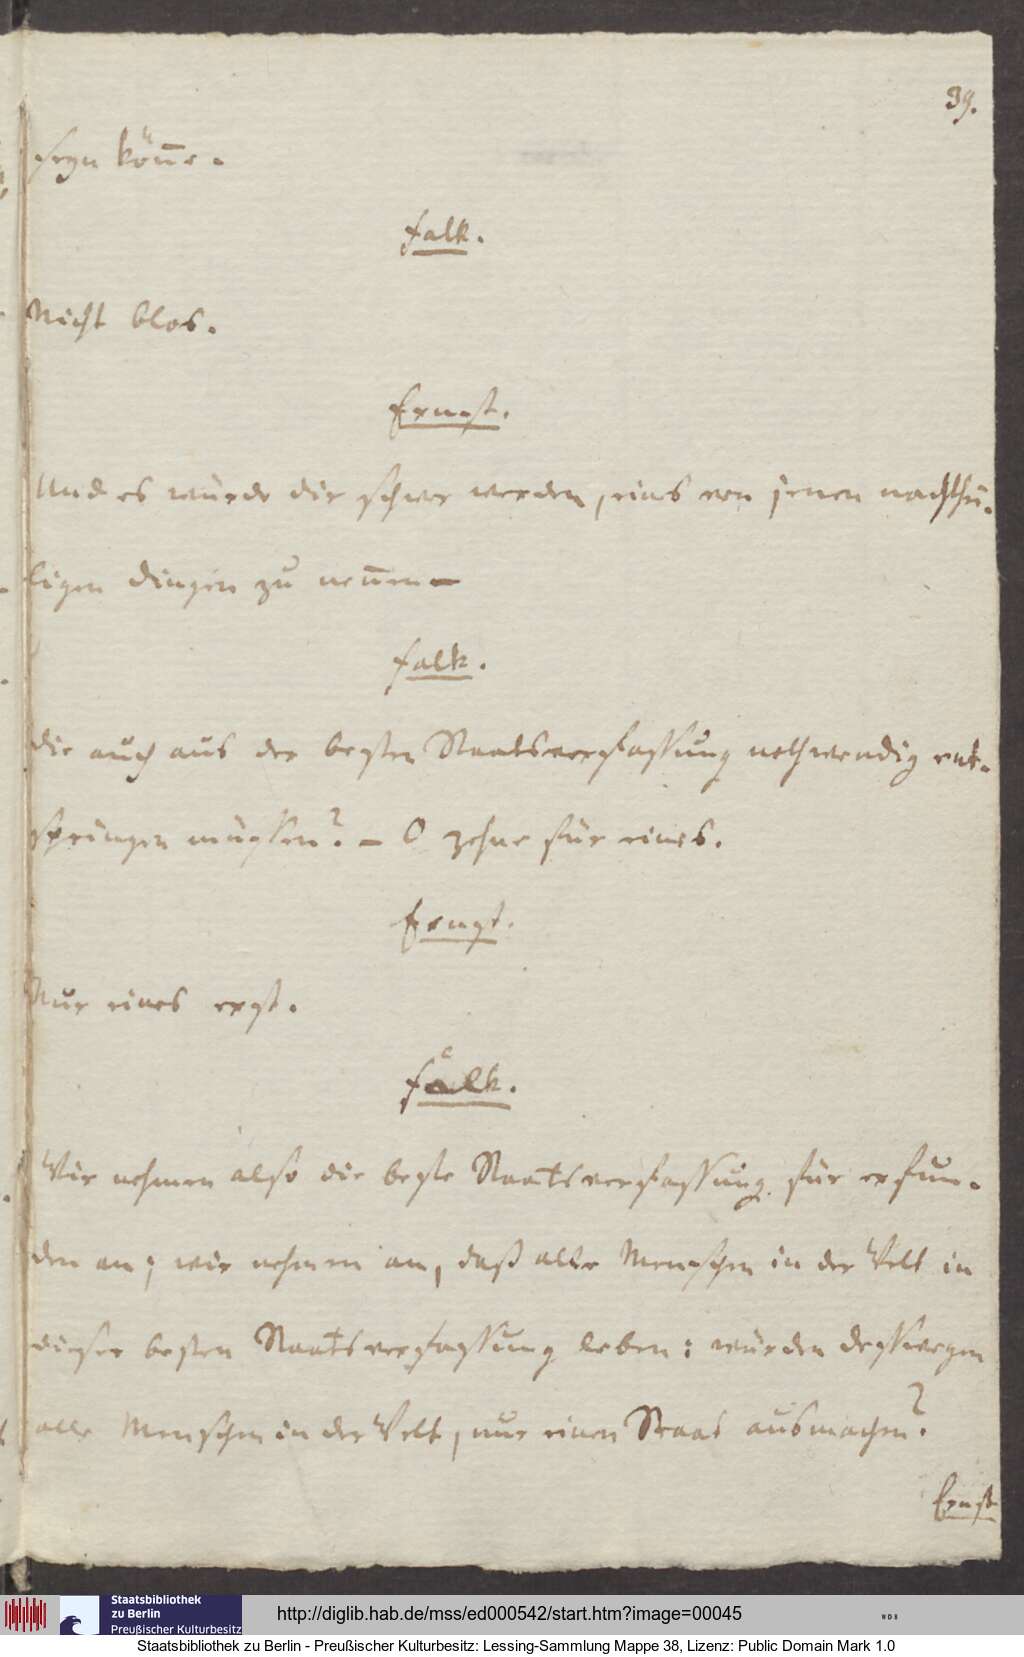 39.
seyn könne.
Falk.
Nicht blos.
Ernst.
Und es würde dir schwer werden, eins von jenen nachthei-
ligen Dingen zu nennen –
Falk.
die auch aus der besten Staatsverfassung nothwendig ent-
springen müssen? – O zehne für eines.
Ernst.
Nur eines erst.
Falk.
Wir nehmen also die beste Staatsverfassung für erfun-
den an; wir nehmen an, daß alle Menschen in der Welt in
dieser besten Staatsverfassung leben: würden desswegen
alle Menschen in der Welt, nur einen Staat ausmachen?
Ernst
Staatsbibliothek
zu Berlin
Preußischer Kulturbesitz
http://diglib.hab.de/mss/ed000542/start.htm?image=00045
WDB
Staatsbibliothek zu Berlin - Preußischer Kulturbesitz: Lessing-Sammlung Mappe 38, Lizenz: Public Domain Mark 1.0